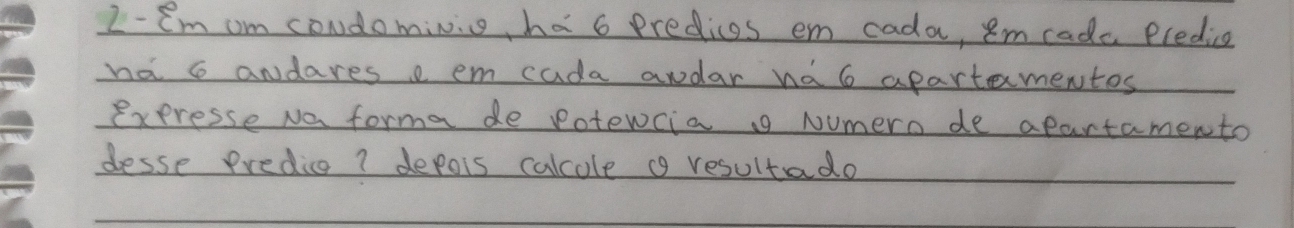 2 - Em um condominio, há 6 predios em cada, em cada predio
há 6 andares e em cada andar há 6 apartamentos
Expresse na forma de potencia o numero de apartamento
desse predio ? depois calcule o resultado